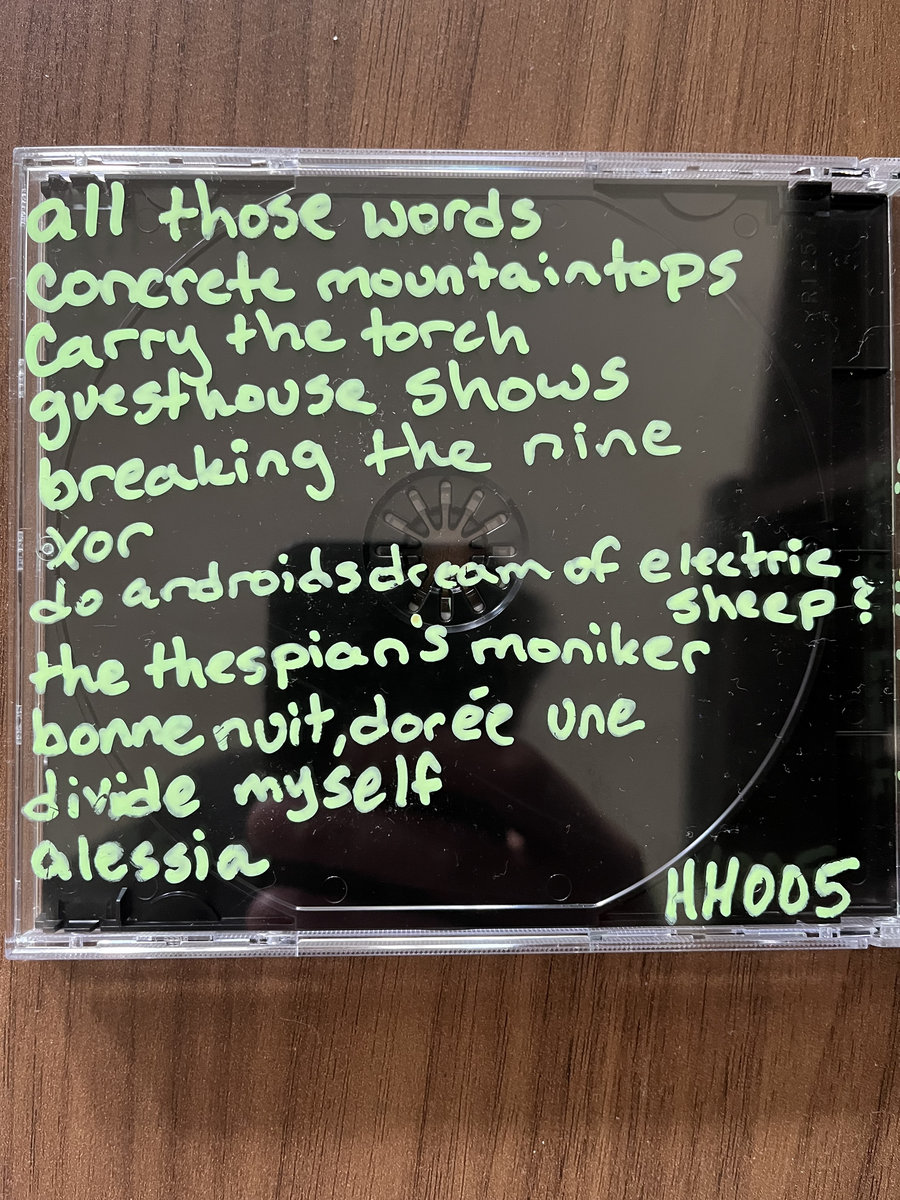 all those words
concrete mountaintops
carry the torch
guesthouse shows
breaking the nine
xor
do androids dream of electric
sheep?
the thespian's moniker
bonne nuit, dorée une
divide myself
alessia
HH005